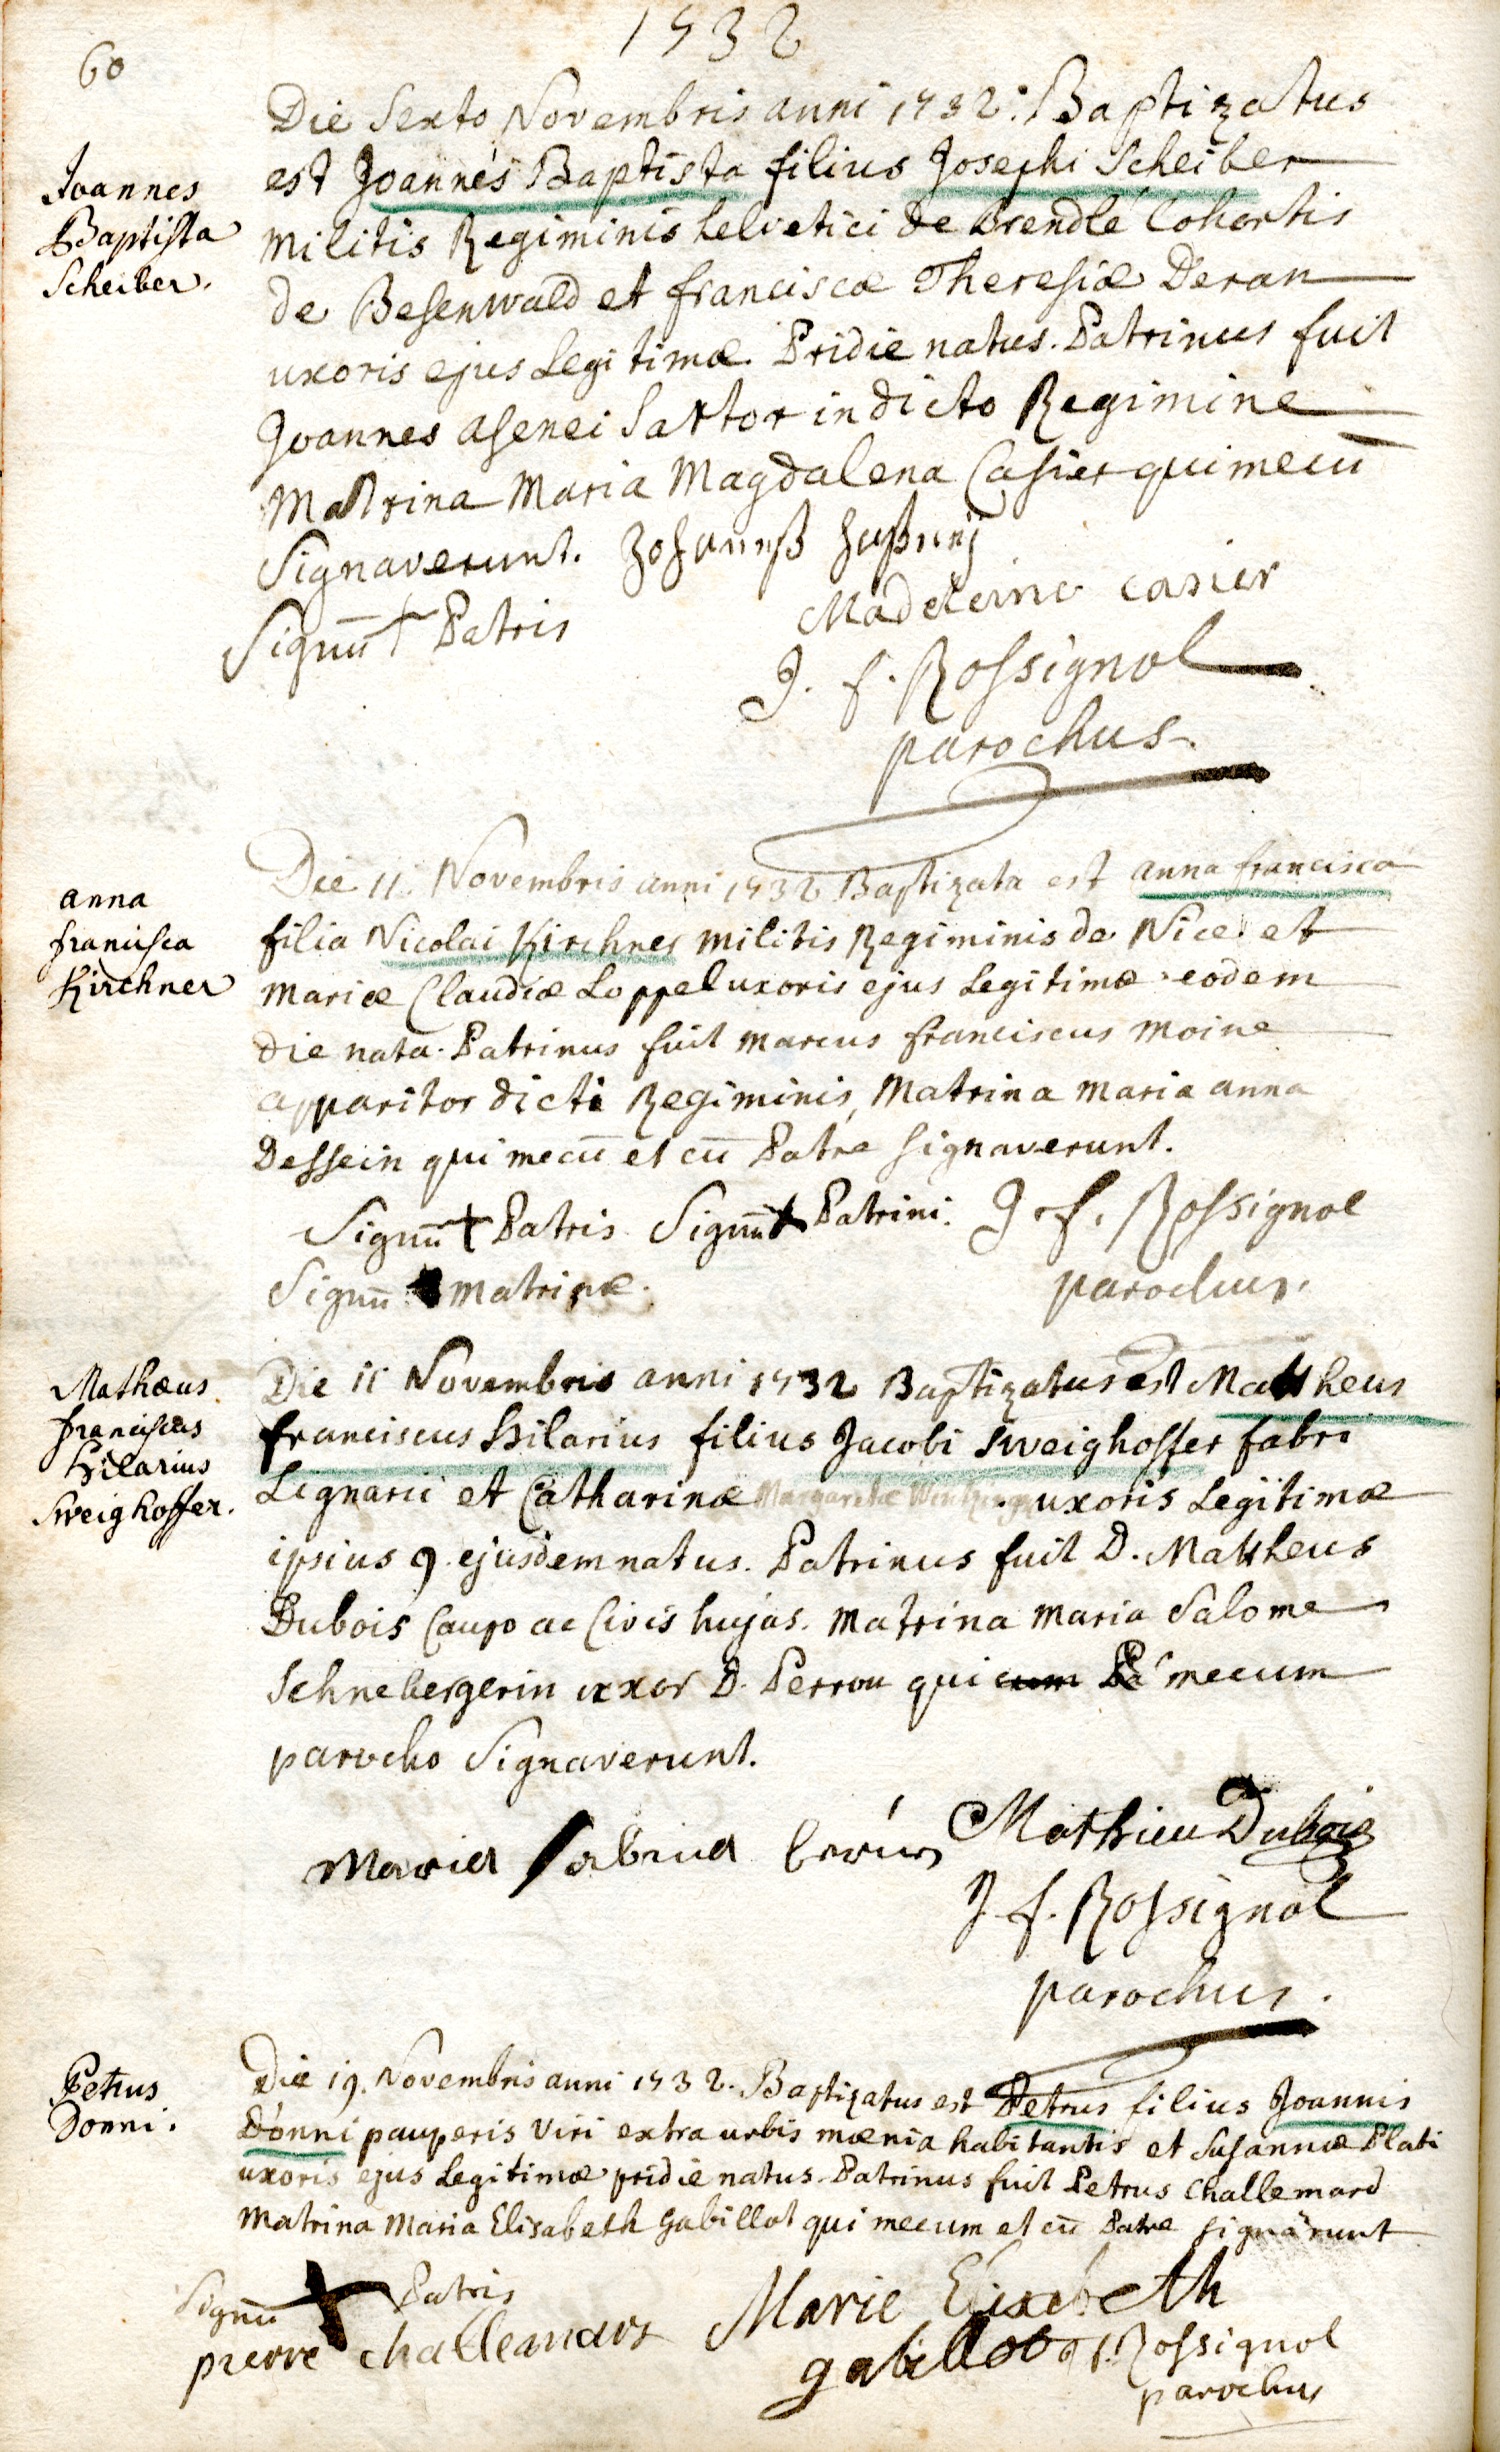 1732
60
Die Sexto Novembris anni 1732. Baptizatus
est Joannes Baptista filius Josephi Scheiber
Militis Regiminis helvetici de Brendlé Cohortis
de Besenwald et franciscæ Theresiæ Deran
uxoris ejus Legitimæ. Pridie natus. Patrinus fuit
Joannes asenei Sartor in dicto Regimine
Matrina Maria Magdalena Casier qui mecū
Signaverunt.
Joannes
Baptista
Scheiber.
Madeleine casier
Signū † Patris
J. f. Rossignol
parochus.
Die 11. Novembris anni 1732 Baptizata est anna francisca
filia Nicolai Kirchner militis Regiminis de Nice et
Mariæ Claudiæ Loppel uxoris ejus Legitimæ eodem
die nata. Patrinus fuit marcus franciscus moine
apparitor dicti Regiminis, Matrina maria anna
Dessein qui mecū et cū Patre signaverunt.
anna
francisca
Kirchner
Signū † Patris Signū † Patrini. J. f. Rossignol
Signū † matrinæ. parochus.
Die 11 Novembris anni 1732 Baptizatus est Mattheus
franciscus hilarius filius Jacobi Sweighoffer fabri
Lignarii et Catharinæ Margarethæ uxoris Legitimæ
ipsius 9. ejusdem natus. Patrinus fuit D. Mattheus
Dubois Caupo ac Civis hujas. Matrina Maria Salome
Schnebergerin uxor D. Perrou qui cum Pa mecum
parocho Signaverunt.
Mathæus
franciscus
Hilarius
Sweighoffer.
Maria Sabina Mathieu Dubois
J. f. Rossignol
parochus.
Die 19. Novembris anni 1732. Baptizatus est Petrus filius Joannis
Donni pauperis Viri extra urbis mœnia habitantis et Susannæ Plati
uxoris ejus Legitimæ pridie natus. Patrinus fuit Petrus Challemard
Matrina Maria Elisabeth Gabillot qui mecum et cū Patre signārunt
Petrus
Donni.
Signū † Patris Marie Elisabeth
pierre gabillot J. f. Rossignol
parochus